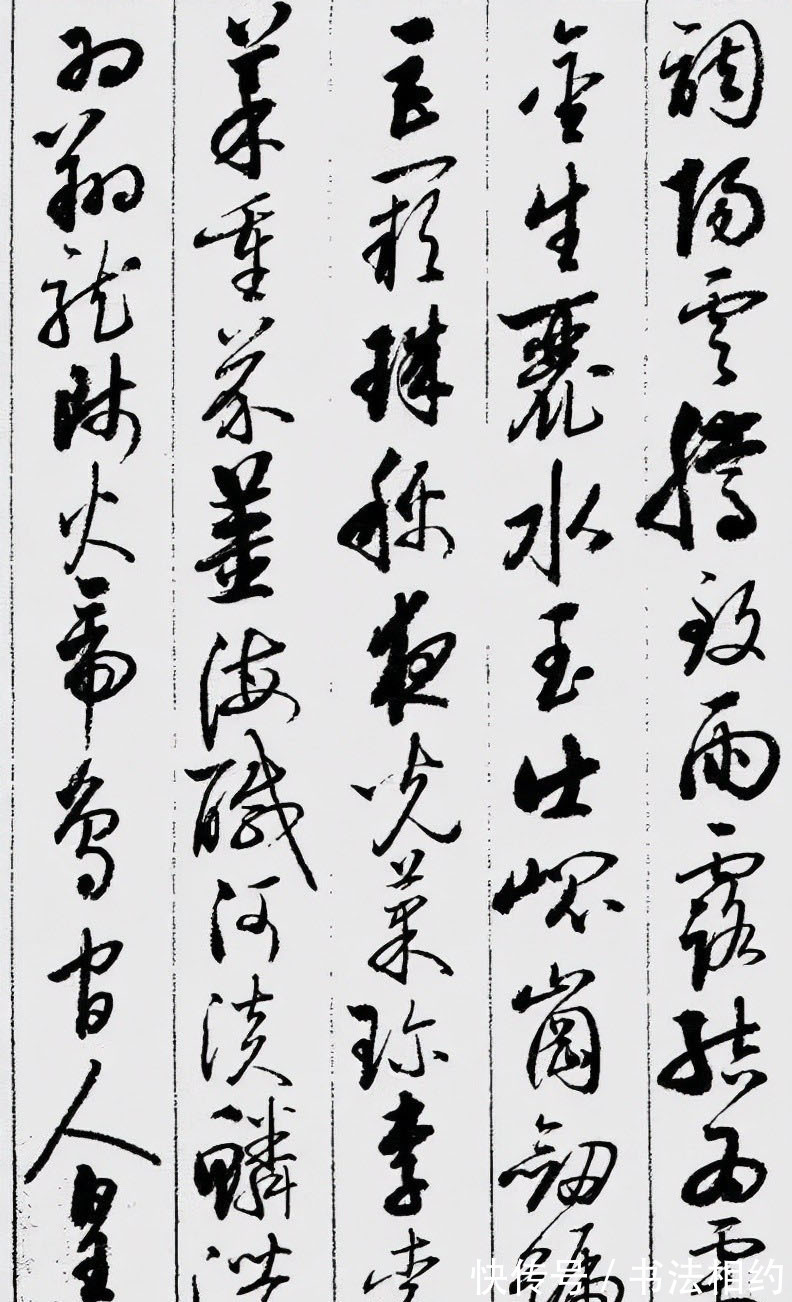 調陽雲騰致雨露結為霜
金生麗水玉出崑崗劍號
巨闕珠稱夜光菓珍李柰
菜重芥薑海鹹河淡鱗潛
羽翔龍師火帝鳥官人皇
快传号 / 书法相约